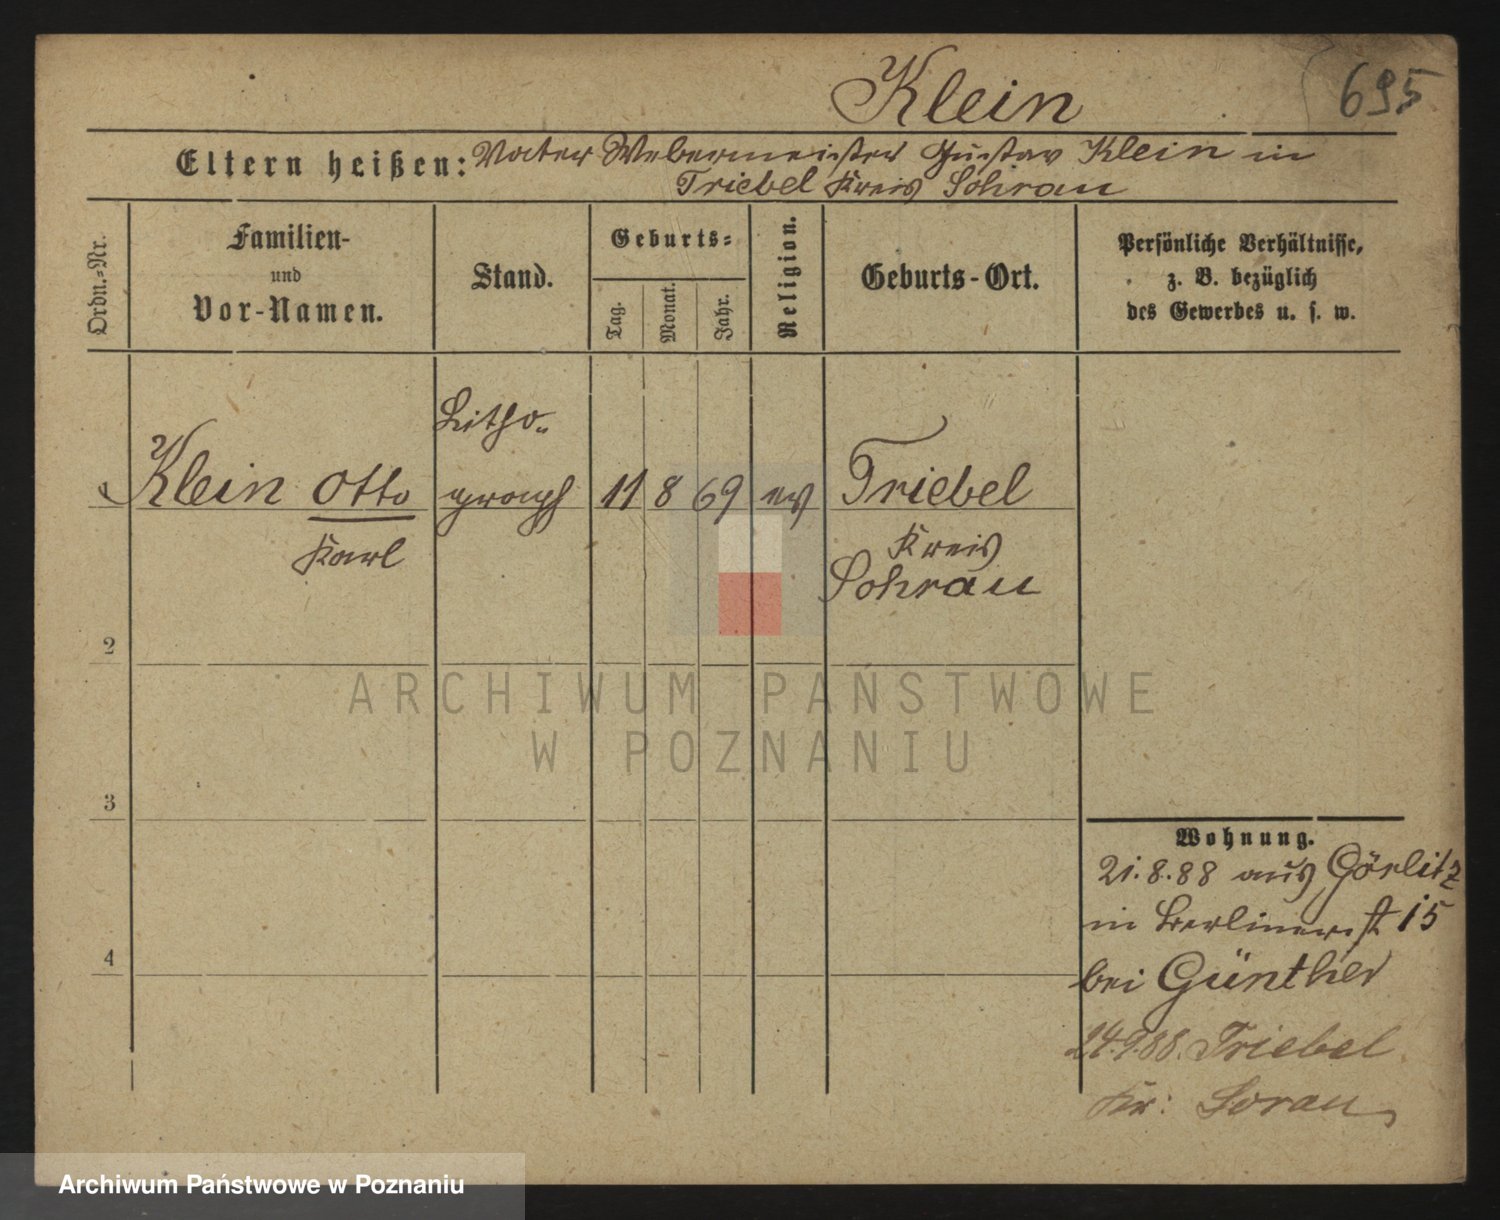 Klein 695
Eltern heißen: Vater Webermeister Gustav Klein in
Triebel Kreis Sohrau
Ordn.-Nr.
Familien-
und
Vor-Namen.
Stand.
Geburts-
Tag.
Monat.
Jahr.
Religion.
Geburts-Ort.
Persönliche Verhältnisse,
z. B. bezüglich
des Gewerbes u. s. w.
Litho-
1 Klein Otto graph 11 8 69 ev Triebel
Karl Kreis
Sohrau
2
ARCHIWUM PAŃSTWOWE
W POZNANIU
3
4
Wohnung.
21.8.88 aus Görlitz
in Berlinerst 15
bei Günther
24.9.88. Triebel
Kr: Sorau
Archiwum Państwowe w Poznaniu